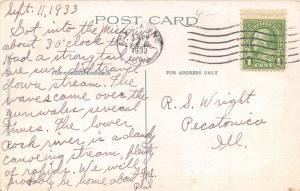 Sept. 11, 1933
POST CARD
Got into the Miss.
about 3 o'clock
Had a strong
down stream. The
waves came over the
gunwales several
times. The lower
Rock river is a dandy
canoeing stream, plenty
of rapids. We will
probably be home about Fri.
Phil
FOR ADDRESS ONLY
R. S. Wright
Pecatonica
Ill.
1933
1 CENT 1